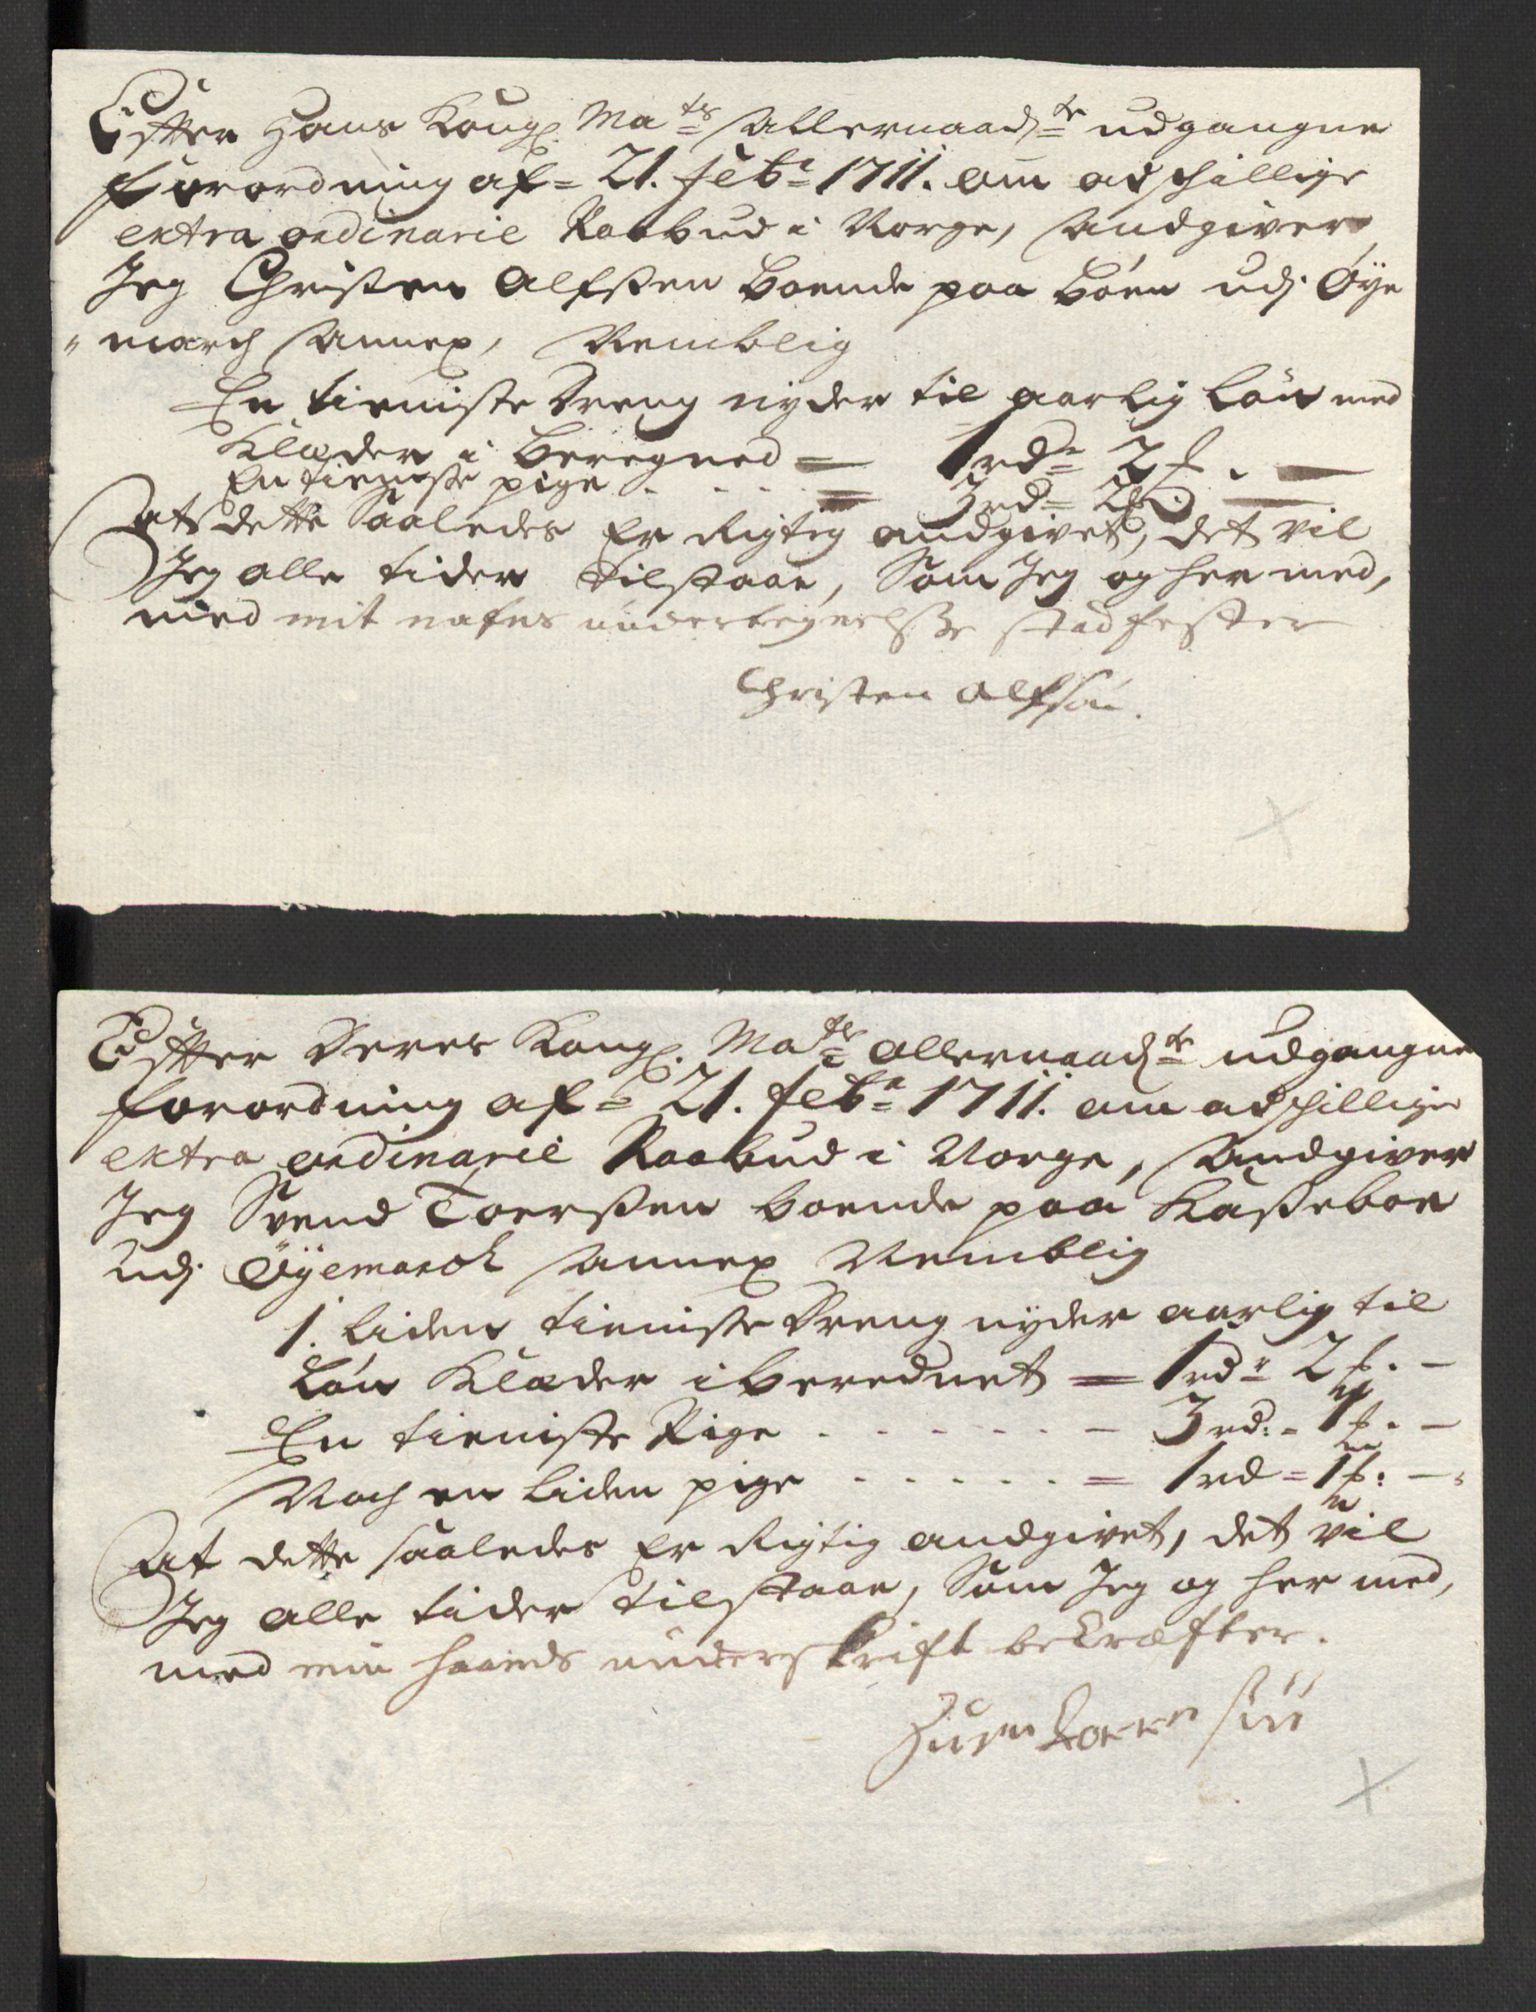 Effter Hans Kongl. Mats Allernaadste udgangne
forordning af 21. febr 1711. om adschillige
extra ordinarie Paabud i Norge, Andgiver
Jeg Christen Alfssen boende paa Böen udj Öye
march Annex, Nemblig
En tieniste Dreng nyder til aarlig Lön med
Klæder i beregned = 1 rdr 2 f. —
En tieniste pige . . . . = 3 rd = 2 f. —
At dette Saaledes Er Rigtig andgivet, det vil
Jeg alle tider tilstaae, Som Jeg og her med,
med mit nafns undertegnelsse stadfester
Christen Alfsön.
Effter Deres Kongl. Mats allernaadste udgangne
forordning af = 21. febr 1711. om adschillige
extra ordinarie Paabud i Norge, Andgiver
Jeg Svend Toerssen boende paa Kasseboe
udj Öyemarck Annex Nemblig
1. Liden tieniste Dreng nyder aarlig til
Lön Klæder iberednet = 1 rdr 2 f. —
En tieniste Pige . . . . . . — 3 rd: = 1 f. —
Noch en Liden pige . . . . . = 1 rd = 1 f. —
At dette saaledes Er Rigtig andgivet, det vil
Jeg alle tider tilstaae, Som Jeg og her med,
med min haands underskrift bekræfter.